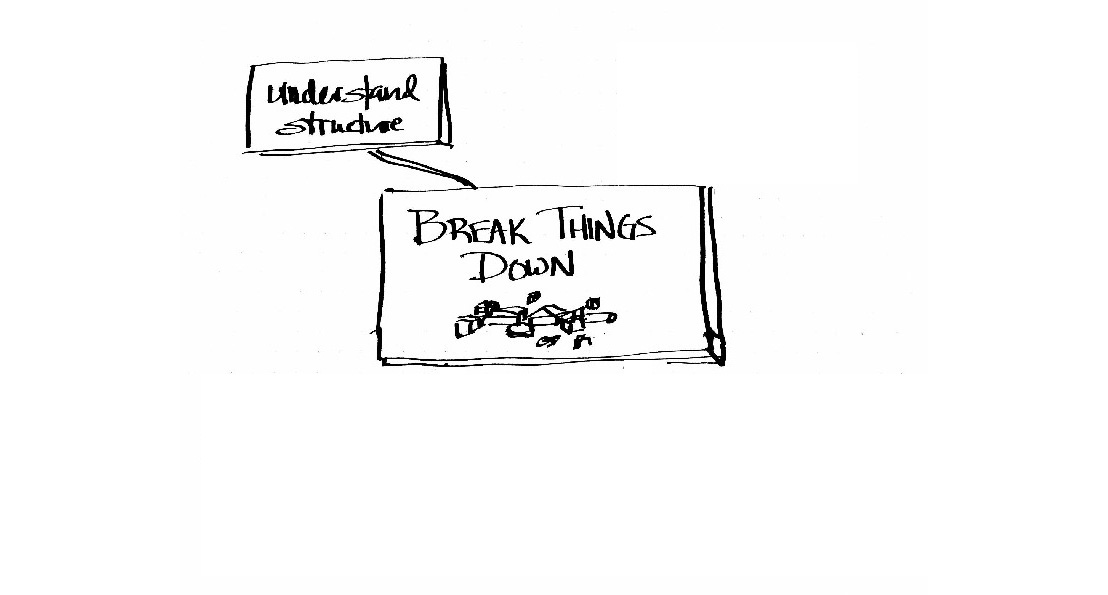 understand
structure
BREAK THINGS
DOWN